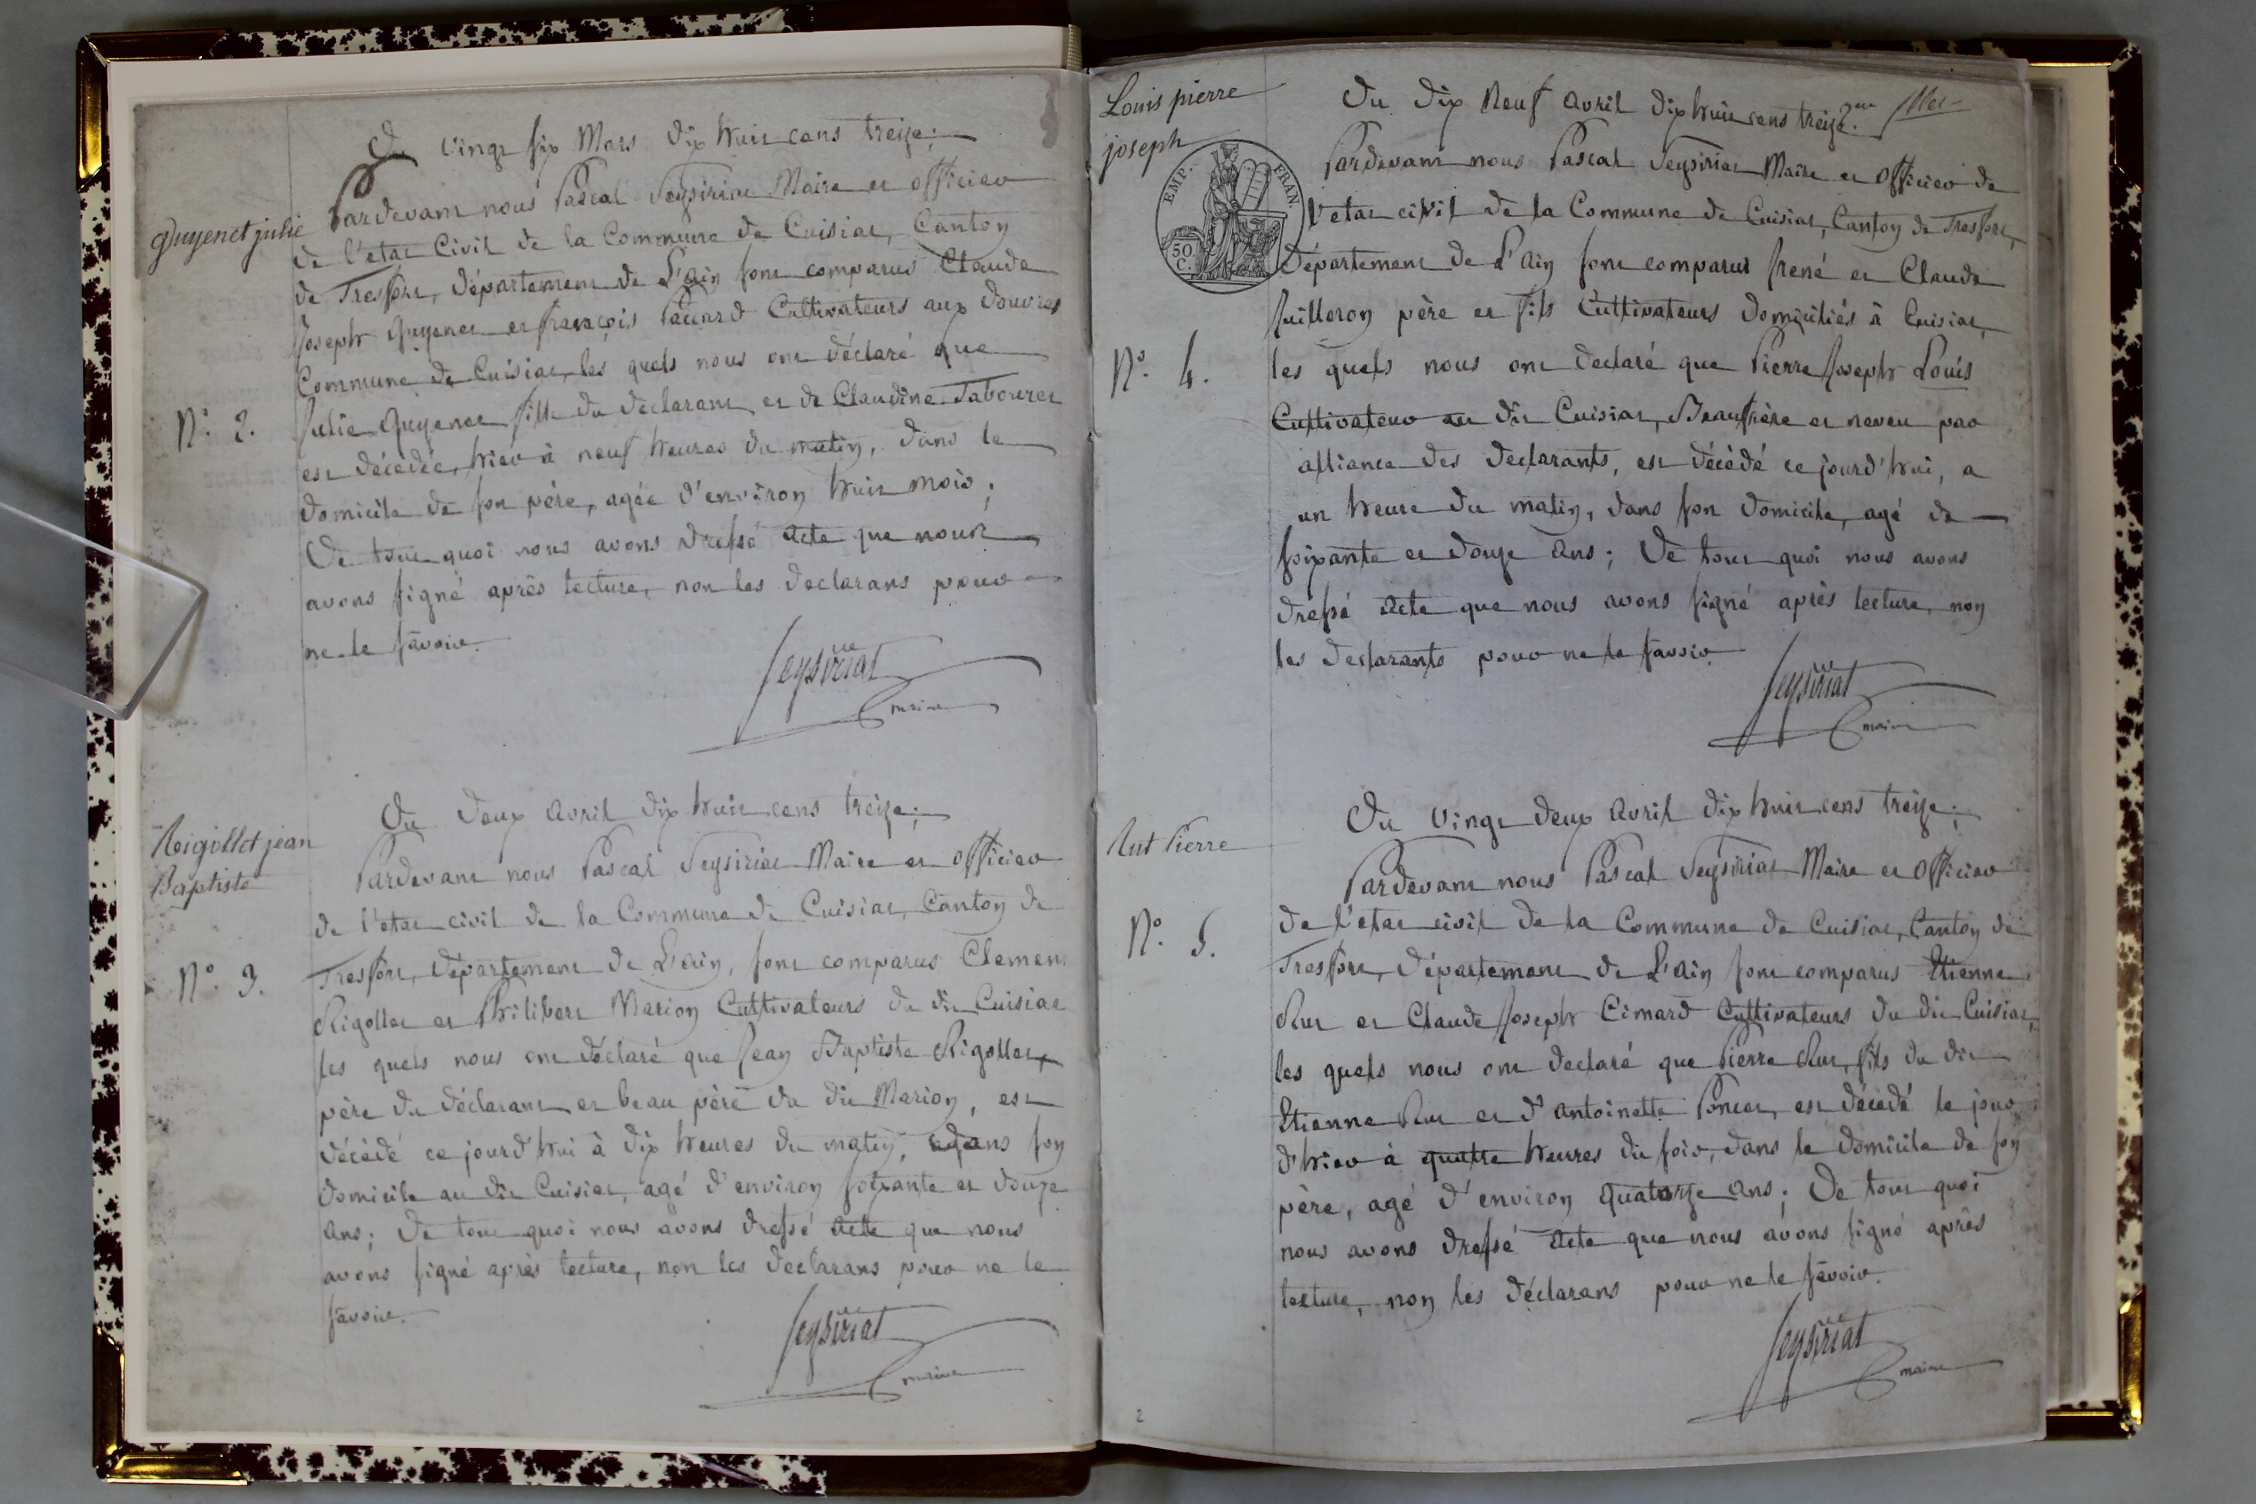 Du vingt six Mars dix huit cens treize;
Pardevant nous Pascal Seysiriat Maire et officier
Guyenet julie
de l'etat Civil de la Commune de Cuisiat, Canton
de Treffort, département de L'ain sont comparus Claude
Joseph Guyenet et françois Pauard Cultivateurs aux douvres
Commune de Cuisiat, les quels nous ont déclaré que
N.° 2.
Julie Guyenet fille du declarant, et de Claudine Tabouret
est décedée, hier à neuf heures du matin, dans le
domicile de son père, agée d'environ huit mois;
De tout quoi nous avons dressé Acte que nous
avons signé après lecture, non les declarans pour
ne le savoir.
Seysiriat
maire
Du deux avril dix huit cens treize;
Reigollet jean
Baptiste
Pardevant nous Pascal Seysiriat Maire et officier
de l'etat civil de la Commune de Cuisiat, Canton de
N.° 3.
Treffort, département de L'ain, sont comparus Clement
Rigollet et Philibert Marion Cultivateurs du dit Cuisiat
les quels nous ont déclaré que Jean Baptiste Rigollet,
père du déclarant et beau père du dit Marion, est
décédé ce jourd'hui à dix heures du matin, dans son
domicile au dit Cuisiat, agé d'environ soixante et douze
ans; De tout quoi nous avons dressé Acte que nous
avons signé après lecture, non les declarans pour ne le
savoir.
Seysiriat
maire
Louis pierre
joseph
Du dix Neuf avril dix huit cens treize.
Pardevant nous Pascal Seysiriat Maire et officier de
EMP. FRAN
50
C.
l'etat civil de la Commune de Cuisiat, Canton de Treffort,
Département de L'Ain sont comparus René et Claude
Vuilleron père et fils Cultivateurs domiciliés à Cuisiat,
N.° 4.
les quels nous ont declaré que Pierre Joseph Louis
Cultivateur au dit Cuisiat, Beaufrère et neveu par
alliance des declarants, est décédé ce jourd'hui, a
un heure du matin, dans son domicile, agé de
soixante et douze ans; De tout quoi nous avons
dressé Acte que nous avons signé après lecture, non
les declarants pour ne le savoir.
Seysiriat
maire
Du vingt deux avril dix huit cens treize;
Rut Pierre
Pardevant nous Pascal Seysiriat Maire et officier
N.° 5.
de l'etat civil de la Commune de Cuisiat, Canton de
Treffort, département de L'Ain sont comparus Etienne
Rut et Claude Joseph Cimard Cultivateurs du dit Cuisiat,
les quels nous ont declaré que Pierre Rut, fils du dit
Etienne Rut et d'antoinette Poncet, est décedé le jour
d'hier à quatre heures du soir, dans le domicile de son
père, agé d'environ quatorze ans; De tout quoi
nous avons dressé Acte que nous avons signé après
lecture, non les déclarans pour ne le savoir.
Seysiriat
maire
2